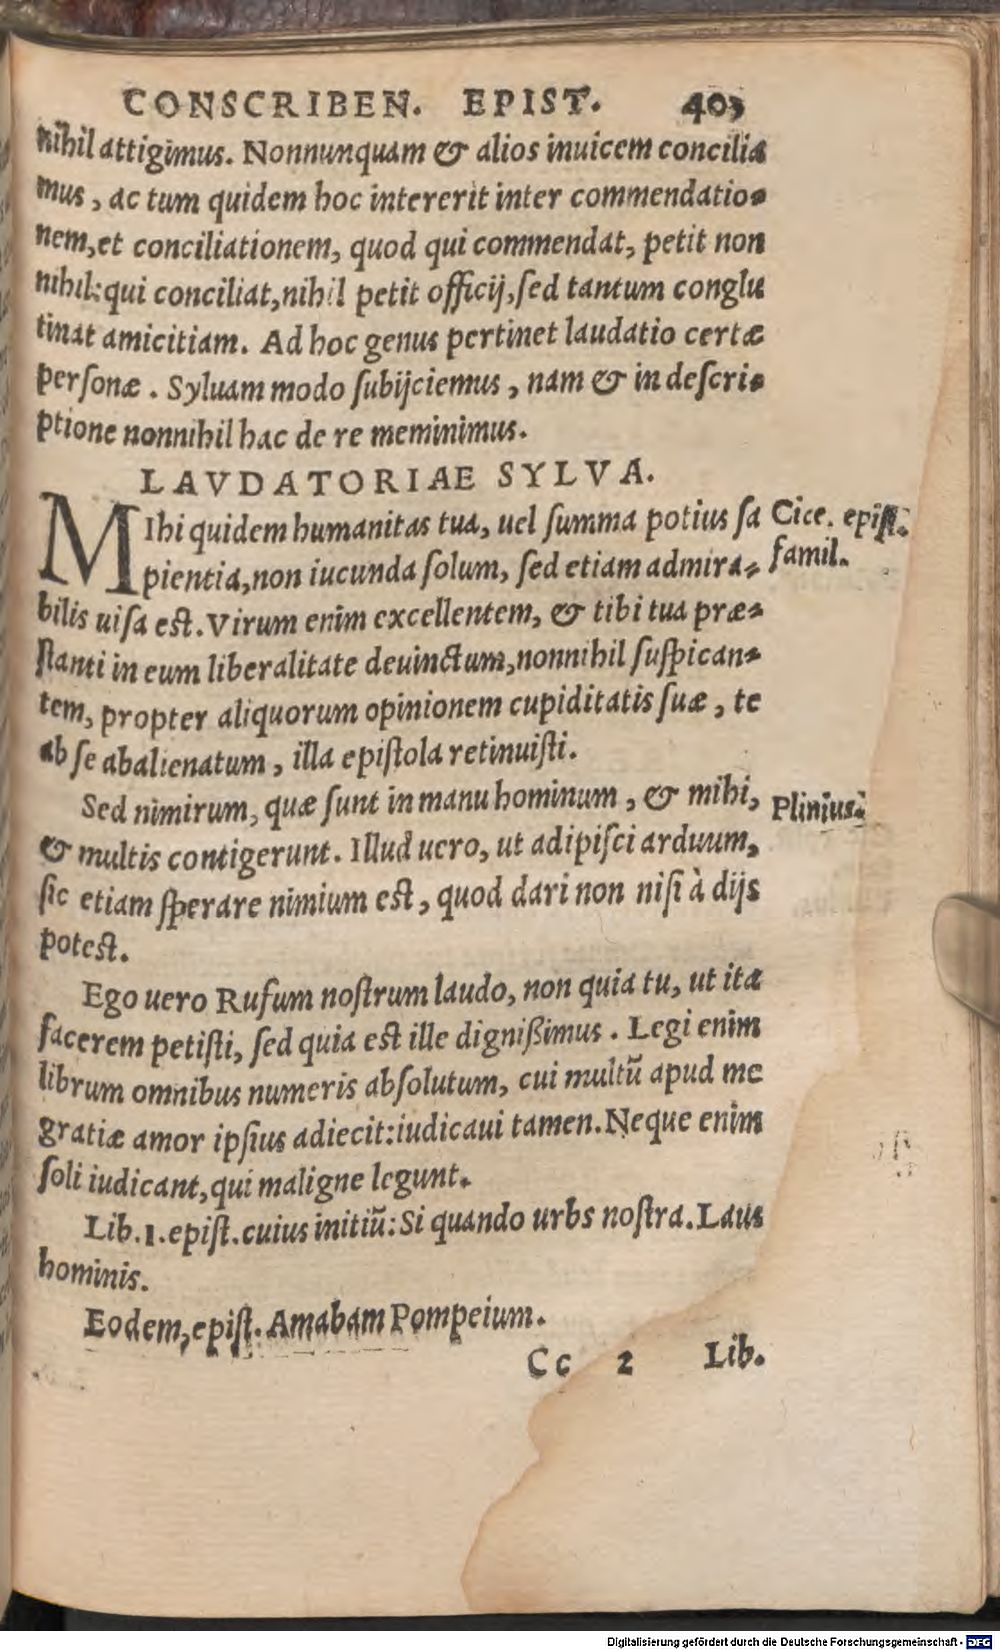 CONSCRIBEN. EPIST. 403
nihil attigimus. Nonnunquam & alios inuicem concilia
mus, ac tum quidem hoc intererit inter commendatio-
nem, et conciliationem, quod qui commendat, petit non
nihil: qui conciliat, nihil petit officij, sed tantum conglu
tinat amicitiam. Ad hoc genus pertinet laudatio certæ
personæ. Syluam modo subijciemus, nam & in descri-
ptione nonnihil hac de re meminimus.
LAVDATORIAE SYLVA.
MIhi quidem humanitas tua, uel summa potius sa
pientia, non iucunda solum, sed etiam admira-
bilis uisa est. Virum enim excellentem, & tibi tua præ-
stanti in eum liberalitate deuinctum, nonnihil suspican-
tem, propter aliquorum opinionem cupiditatis suæ, te
ab se abalienatum, illa epistola retinuisti.
Cice. epist.
famil.
Sed nimirum, quæ sunt in manu hominum, & mihi,
& multis contigerunt. Illud uero, ut adipisci arduum,
sic etiam sperare nimium est, quod dari non nisi à dijs
potest.
Plinius.
Ego uero Rufum nostrum laudo, non quia tu, ut ita
facerem petisti, sed quia est ille dignißimus. Legi enim
librum omnibus numeris absolutum, cui multũ apud me
gratiæ amor ipsius adiecit: iudicaui tamen. Neque enim
soli iudicant, qui maligne legunt.
Lib. 1. epist. cuius initiũ: Si quando urbs nostra. Laus
hominis.
Eodem, epist. Amabam Pompeium.
Cc 2 Lib.
Digitalisierung gefördert durch die Deutsche Forschungsgemeinschaft - DFG